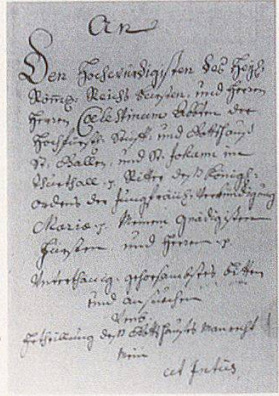 An
Den Hochwürdigsten des Heyl:
Röm: Reichs Fürsten, und Herren
Herren Cœlestinum Abbten der
Hochfürstl: Stifft, und Gottshaus
St. Gallen, und St. Johann im
Thurthall p. Ritter deß Königl:
Ordens der Jungfräul: Verkündigung
Mariæ p. Meinen Gnädigisten
Fürsten und Herren p.
Unterthänig-gehorsambstes Bitten
und anſuchen
Umb
Ertheillung deß Gottshauses Manrecht
Mein
ut Intus